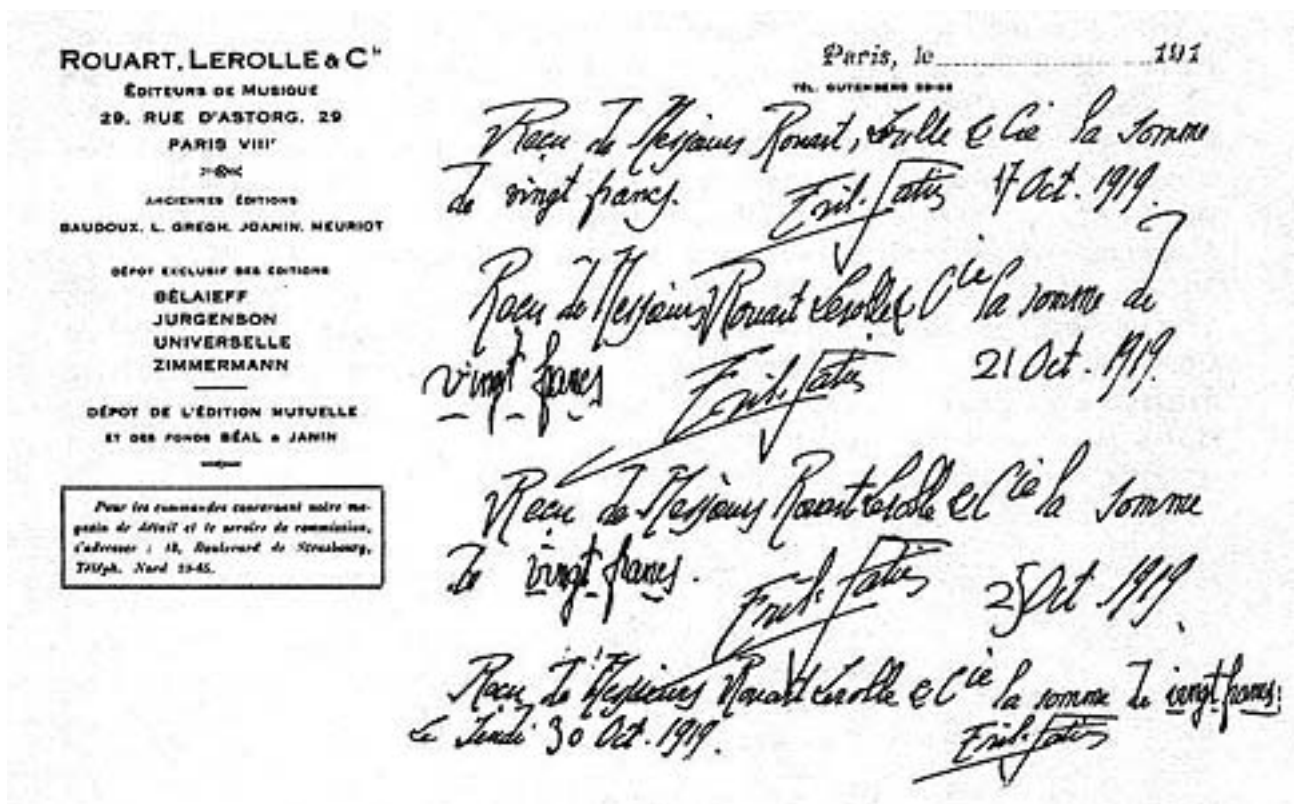 ROUART, LEROLLE & Cie
ÉDITEURS DE MUSIQUE
29, RUE D'ASTORG, 29
PARIS VIIIe
ANCIENNES ÉDITIONS
BAUDOUX, L. GREGH, JOANIN, MEURIOT
DÉPOT EXCLUSIF DES ÉDITIONS
BÉLAIEFF
JURGENSON
UNIVERSELLE
ZIMMERMANN
DÉPOT DE L'ÉDITION MUTUELLE
ET DES FONDS BÉAL & JANIN
Pour les commandes concernant notre ma-
gasin de détail et le service de commission,
s'adresser : 18, Boulevard de Strasbourg,
Téléph. Nord
Paris, le 191
TÉL. GUTENBERG
Reçu de Messieurs Rouart, Lerolle & Cie la somme
de vingt francs. Erik Satie 17 Oct. 1919.
Reçu de Messieurs Rouart Lerolle & Cie la somme de
vingt francs Erik Satie 21 Oct. 1919.
Reçu de Messieurs Rouart Lerolle & Cie la somme
de vingt francs. Erik Satie 25 Oct 1919.
Reçu de Messieurs Rouart Lerolle & Cie la somme de vingt francs:
Le Jeudi 30 Oct. 1919. Erik Satie